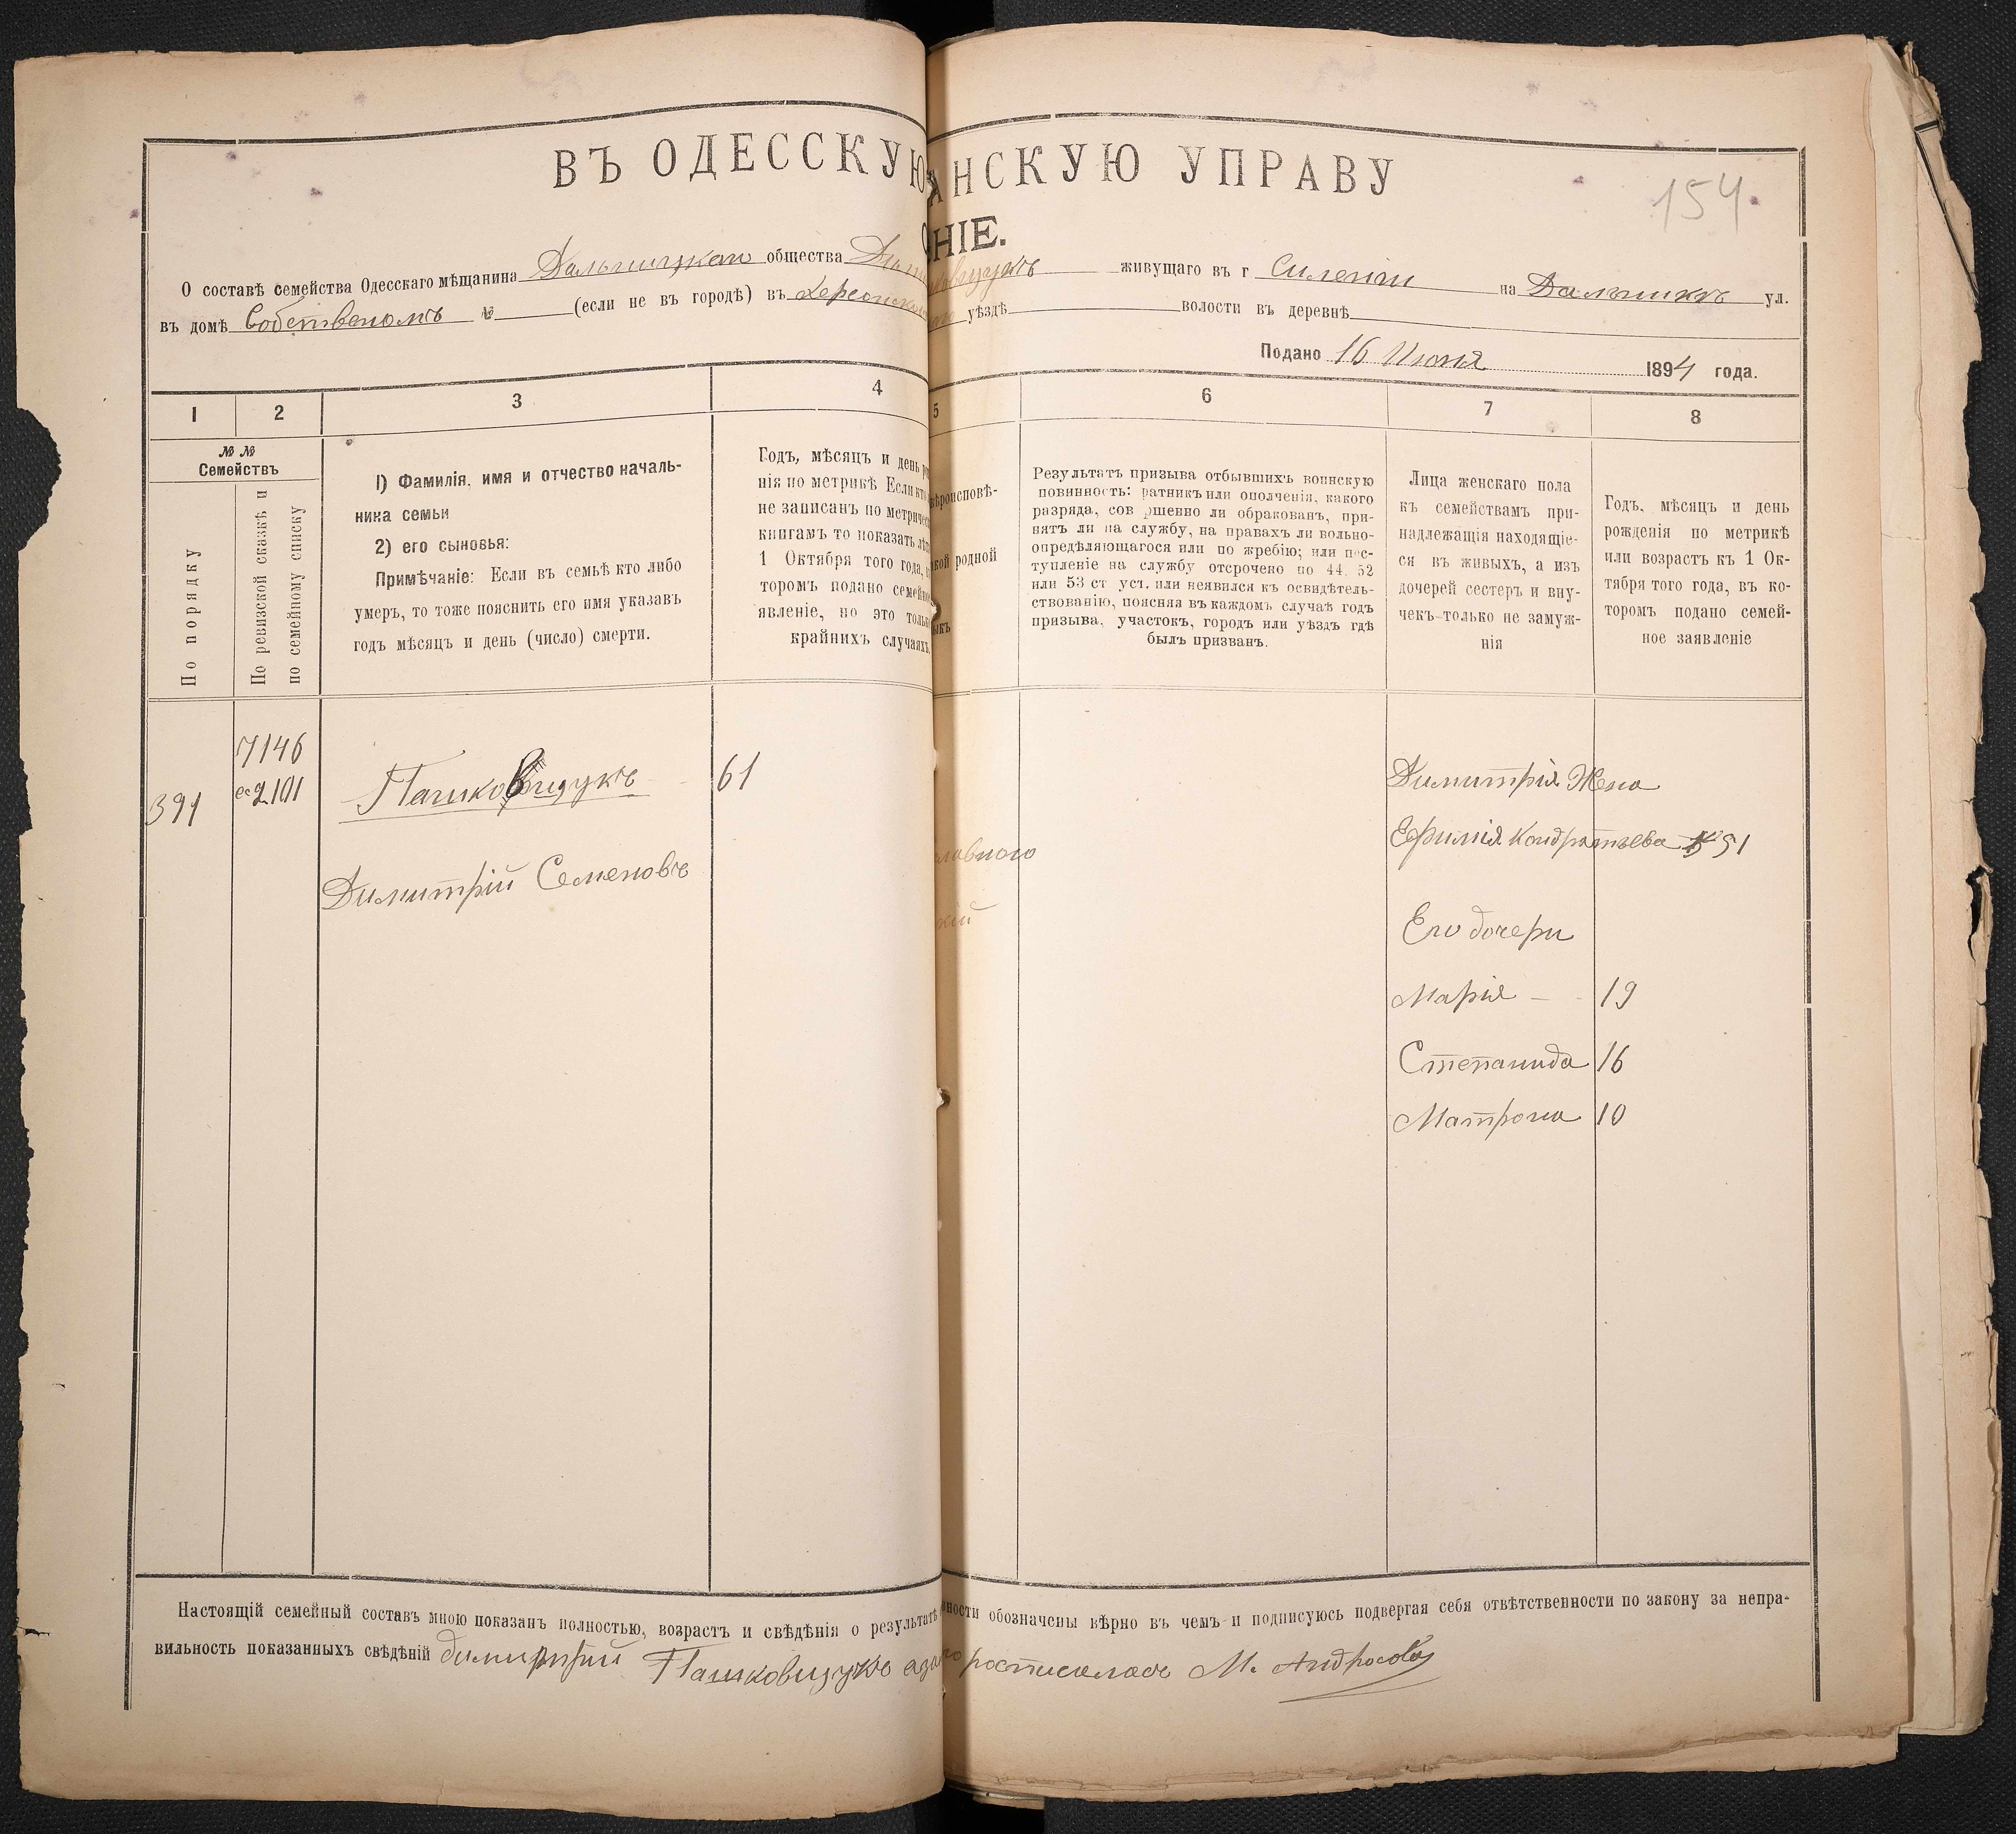 ВЪ ОДЕССКУЮ АНСКУЮ УПРАВУ
154.
НІЕ.
О составѣ семейства Одесскаго мѣщанина Дальницкаго общества живущаго въ г Силеніи на Дальникѣ ул.
въ домѣ Собственомъ № (если не въ городѣ) въ Херсонском уѣздѣ волости въ деревнѣ
Подано 16 Июня 1894 года.
1 2 3 4 5 6 7 8
№ №
Семействъ
По порядку
По ревизской сказкѣ и
по семейному списку
1) Фамилія, имя и отчество началь-
ника семьи
2) его сыновья:
Примѣчаніе: Если въ семьѣ кто либо
умеръ, то тоже пояснить его имя указавъ
годъ мѣсяцъ и день (число) смерти.
Годъ, мѣсяцъ и день
нія по метрикѣ Если
не записанъ по метриче
книгамъ то показать
1 Октября того года,
торомъ подано семей
явленіе, но это толь
крайнихъ случаяхъ
ѣроисповѣ-
кой родной
ыкъ
Результатъ призыва отбывшихъ воинскую
повинность: ратникъ или ополченія, какого
разряда, сов ршенно ли обракованъ, при-
нятъ ли на службу, на правахъ ли вольно-
опредѣляющагося или по жребію; или пос-
тупленіе на службу отсрочено по 44, 52
или 53 ст уст. или неявился къ освидѣтель-
ствованію, поясняя въ каждомъ случаѣ годъ
призыва, участокъ, городъ или уѣздъ гдѣ
былъ призванъ.
Лица женскаго пола
къ семействамъ при-
надлежащія находящіе-
ся въ живыхъ, а изъ
дочерей сестеръ и вну-
чекъ-только не замуж-
нія
Годъ, мѣсяцъ и день
рожденія по метрикѣ
или возрастъ къ 1 Ок-
тября того года, въ ко-
торомъ подано семей-
ное заявленіе
7146
391 2101 Пашковщукъ 61
Димитрій Семеновъ
славного
кій
Димитрія Жена
Ефимія Кондратьева 51
Его дочери
Марія 19
Степанида 16
Матрона 10
Настоящій семейный составъ мною показанъ полностью, возрастъ и свѣдѣнія о результатѣ нности обозначены вѣрно въ чемъ и подписуюсь подвергая себя отвѣтственности по закону за непра-
вильность показанныхъ свѣдѣній димитрий Пашковщукъ росписалась М. Андросова